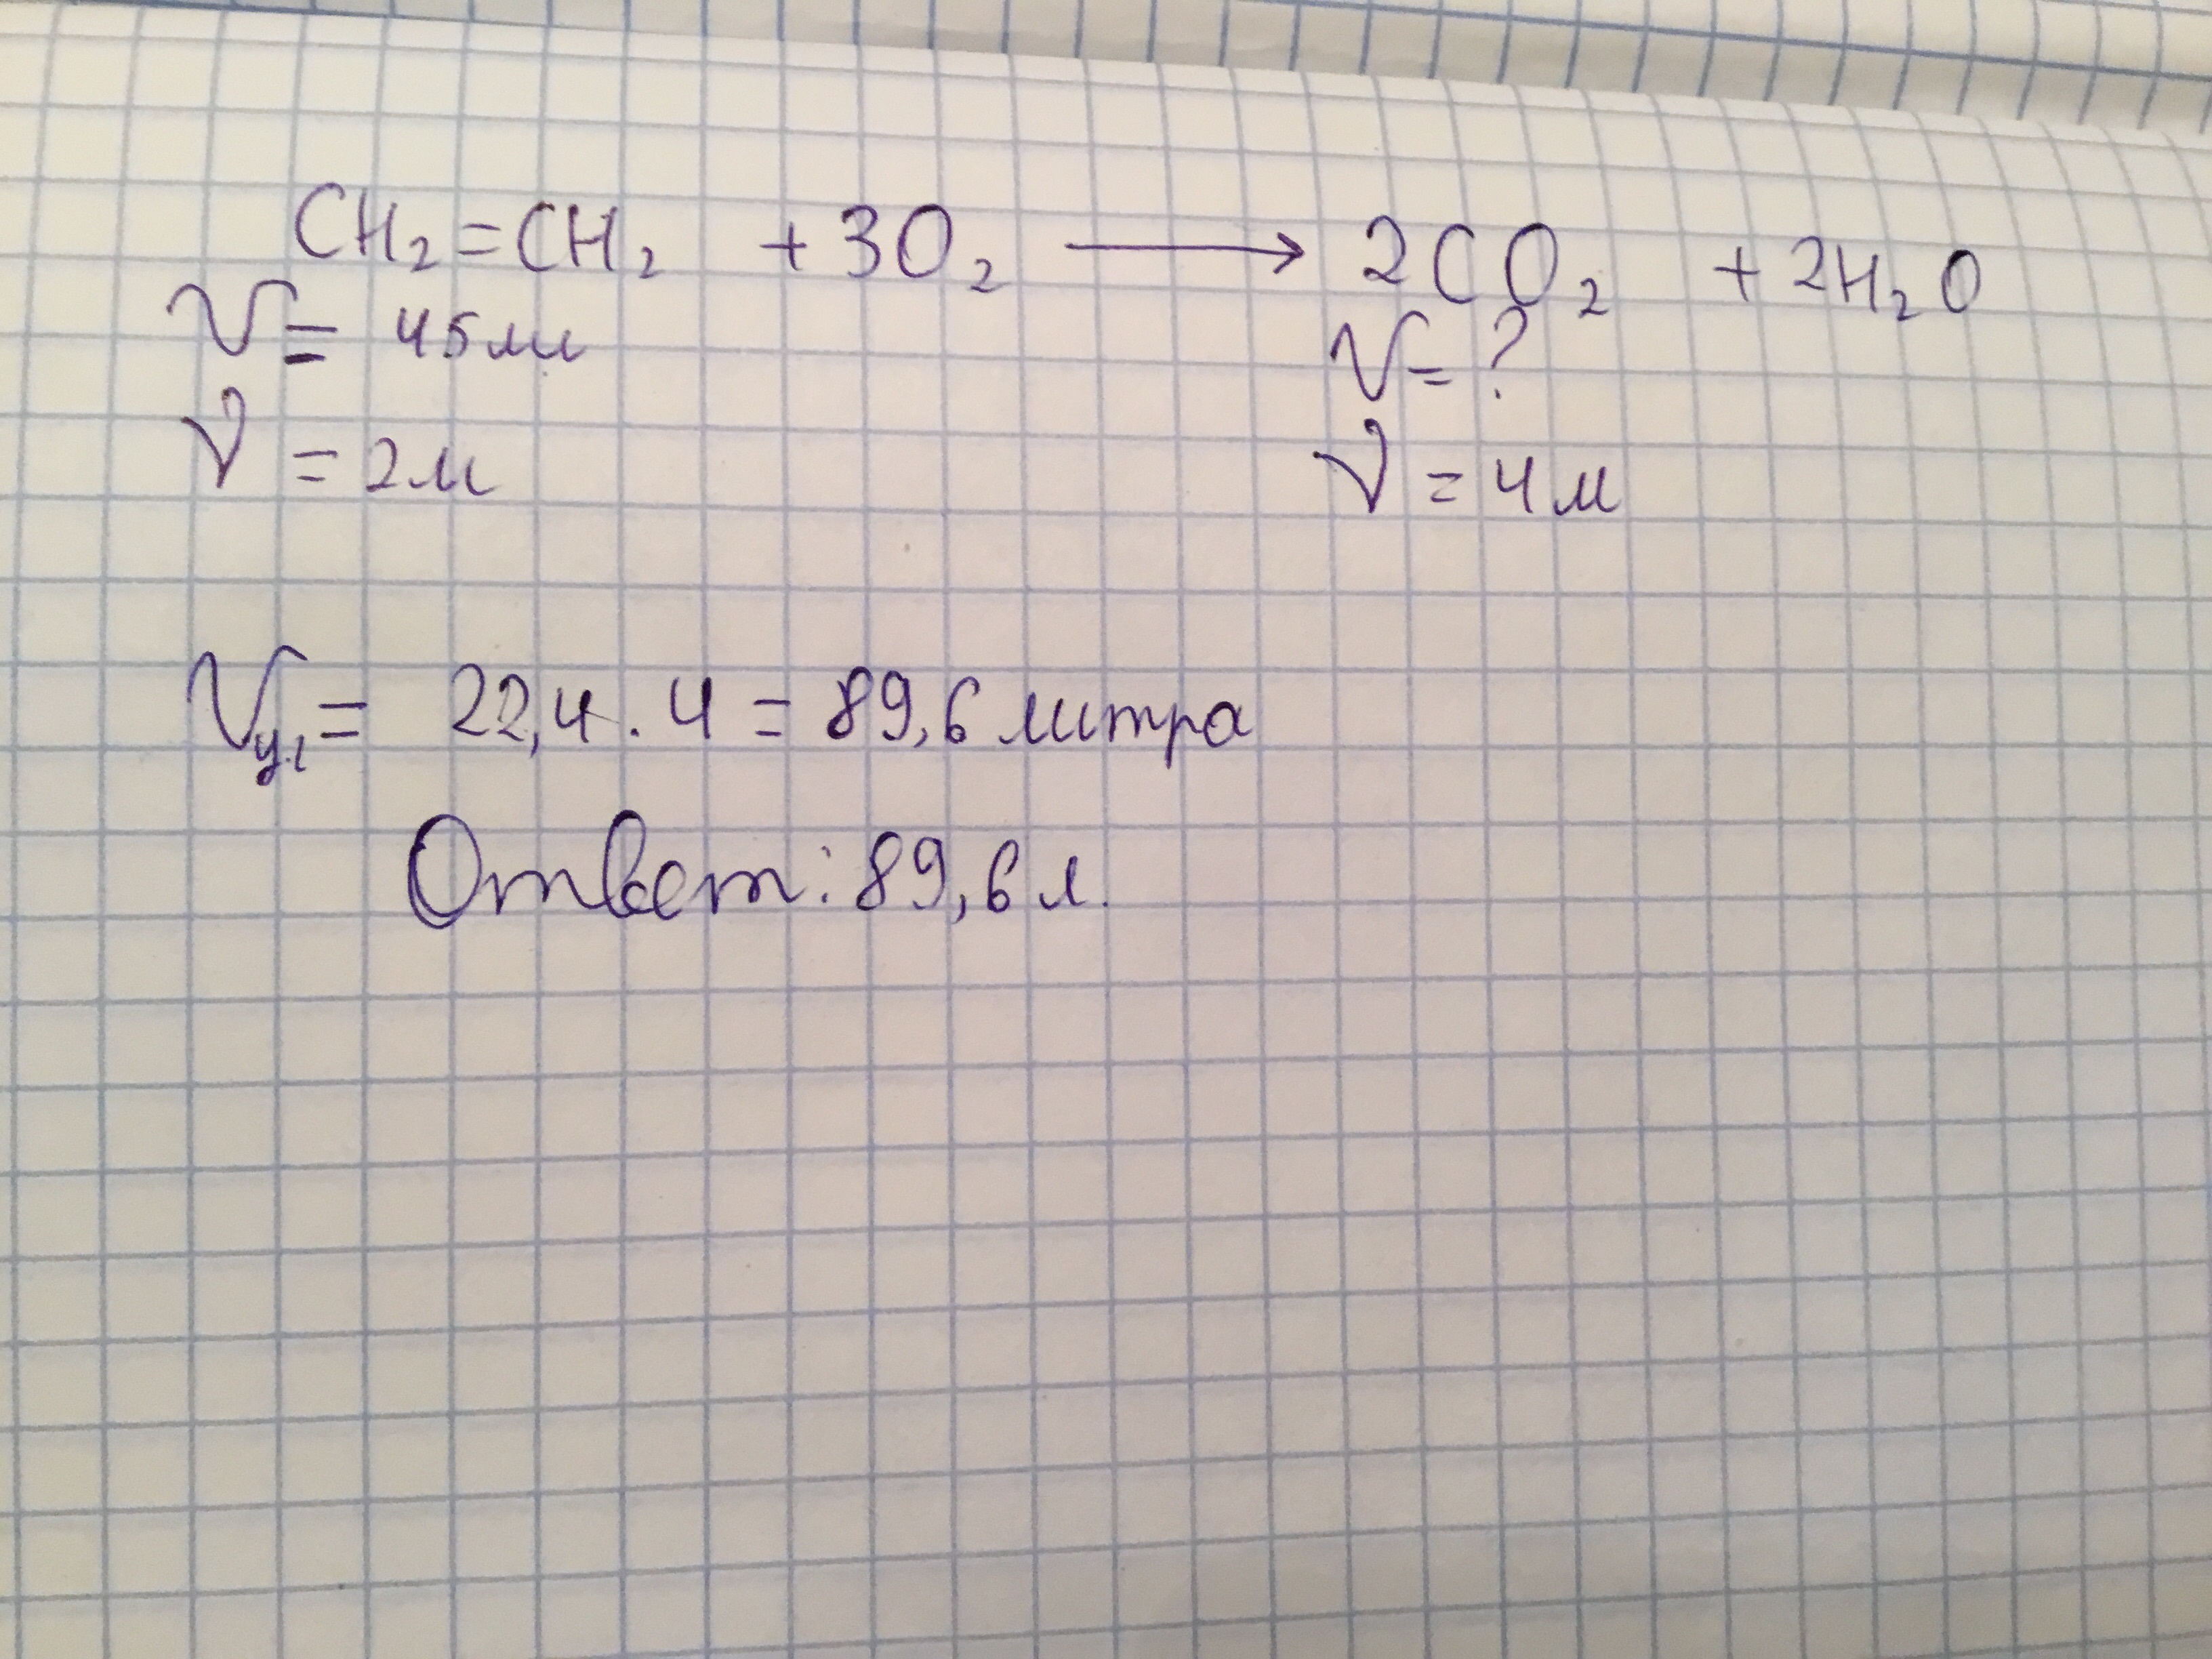 CH₂=CH₂ + 3O₂ ⟶ 2CO₂ + 2H₂O
V= 45мл V= ?
ν = 2м ν = 4м
Vу.г= 22,4 · 4 = 89,6 литра
Ответ: 89,6 л.